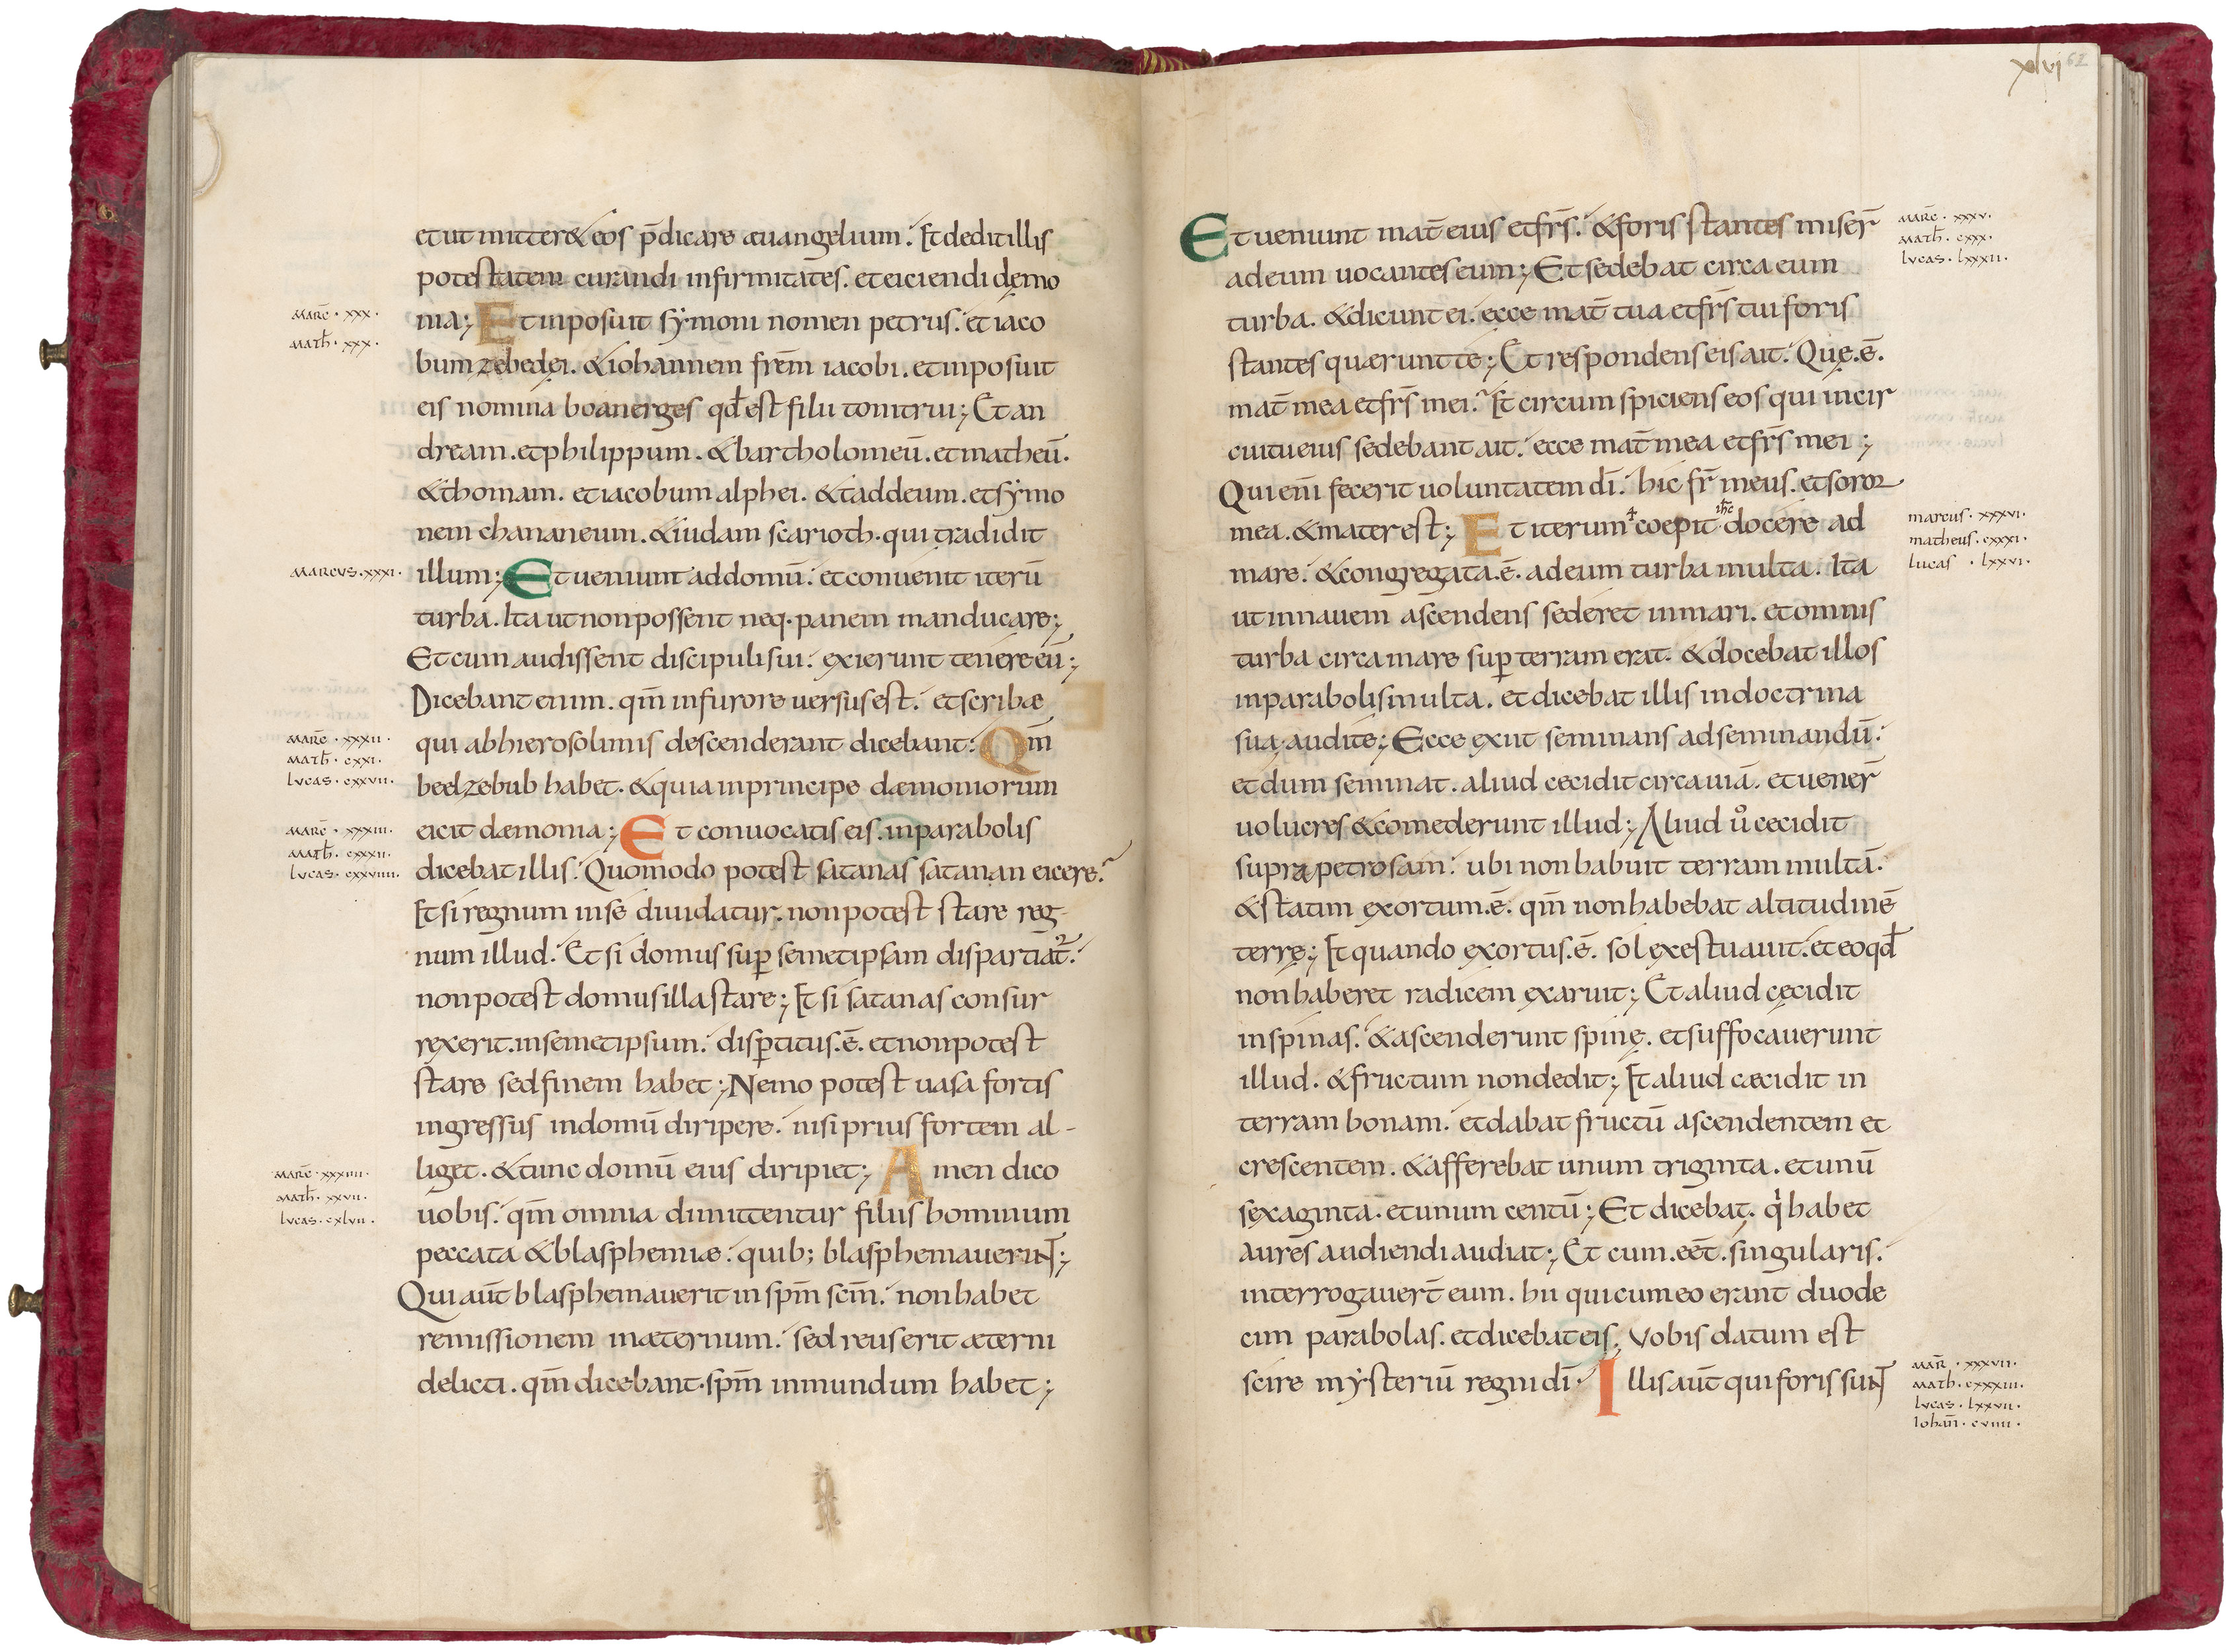 et ut mitter& eos p̄dicare æuangelium. Et dedit illis
potestatem curandi infirmitates. et eiciendi dęmo
marc̄ · xxx ·
math̄ · xxx ·
nia; Et inposuit sẏmoni nomen petrus. et iaco
bum zebedęi. & iohannem frēm iacobi. et inposuit
eis nomina boanerges qđ est filii tonitrui; Et an
dream. et philippum. & bartholomeū. et matheū.
& thomam. et iacobum alphei. & taddeum. et sẏmo
nem chananeum. & iudam scarioth. qui tradidit
marcus · xxxi ·
illum; Et ueniunt ad domū. et conuenit iterū
turba. Ita ut non possent neq· panem manducare;
Et cum audissent discipuli sui. exierunt tenere eū;
Dicebant enim. qm̄ in furore uersus est. et scribæ
marc̄ · xxxii ·
math̄ · cxxi ·
lucas · cxxvii ·
qui ab hierosolimis descenderant dicebant. Qm̄
beelzebub habet. & quia in principe dæmoniorum
marc̄ · xxxiii ·
math̄ · cxxii ·
lucas · cxxviiii ·
eicit dæmonia; Et conuocatis eis. in parabolis
dicebat illis. Quomodo potest satanas satanan eicere?
Et si regnum in se diuidatur. non potest stare reg-
num illud. Et si domus sup semetipsam dispartiat̄.
non potest domus illa stare; Et si satanas consur
rexerit. in semetipsum. disptitus .ē. et non potest
stare sed finem habet; Nemo potest uasa fortis
ingressus in domū diripere. nisi prius fortem al-
marc̄ · xxxiiii ·
math̄ · xxvii ·
lucas · cxlvii ·
liget. & tunc domū eius diripiet; Amen dico
uobis. qm̄ omnia dimittentur filiis hominum
peccata & blasphemiæ. quib; blasphemauerunt;
Qui aūt blasphemauerit in sp̄m sc̄m. non habet
remissionem in æternum. sed reus erit æterni
delicti. qm̄ dicebant. sp̄m inmundum habet;
xlvi 62
marc̄ · xxxv ·
math̄ · cxxx ·
lucas · lxxxii ·
Et ueniunt mat̄ eius et fr̄s. & foris stantes miser̄
ad eum uocantes eum; Et sedebat circa eum
turba. & dicunt ei. ecce mat̄ tua et fr̄s tui foris
stantes quærunt te; Et respondens eis ait. Quę .ē.
mat̄ mea et fr̄s mei? Et circumspiciens eos qui in cir
cuitu eius sedebant ait. ecce mat̄ mea et fr̄s mei;
Qui enī fecerit uoluntatem dī. hic fr̄ meus. et soror
marcus · xxxvi ·
matheus · cxxxi ·
lucas · lxxvi ·
mea. & mater est; Et iterum coepit ihc docere ad
mare. & congregata .ē. ad eum turba multa. Ita
ut in nauem ascendens sederet in mari. et omnis
turba circa mare sup terram erat. & docebat illos
in parabolis multa. et dicebat illis in doctrina
sua. audite; Ecce exiit seminans ad seminandū.
et dum seminat. aliud cecidit circa uiā. et uener̄
uolucres & comederunt illud; Aliud ůo cecidit
supra petrosam. ubi non habuit terram multā.
& statim exortum .ē. qm̄ non habebat altitudinē
terrę; Et quando exortus .ē. sol exęstuauit. et eo qđ
non haberet radicem exaruit; Et aliud cęcidit
in spinas. & ascenderunt spinę. et suffocauerunt
illud. & fructum non dedit; Et aliud cæcidit in
terram bonam. et dabat fructū ascendentem et
crescentem. & afferebat unum triginta. et unū
sexaginta. et unum centū; Et dicebat. qi habet
aures audiendi audiat; Et cum .eēt. singularis.
interrogauer̄t eum. hii qui cum eo erant duode
cim parabolas. et dicebat eis. Vobis datum est
mar̄ · xxxvii ·
math · cxxxiii ·
lucas · lxxvii ·
iohan̄ · cviiii ·
scire mẏsteriū regni dī. Illis aūt qui foris sunt